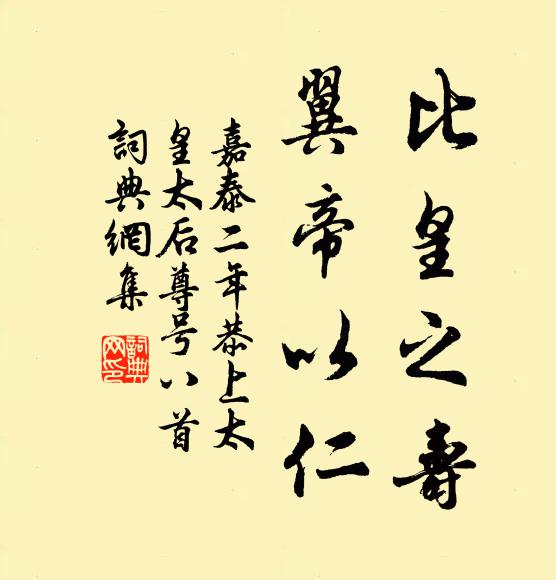 比皇之壽
翼帝以仁
嘉泰二年恭上太
皇太后尊号八首
詞典網集
詞典網印